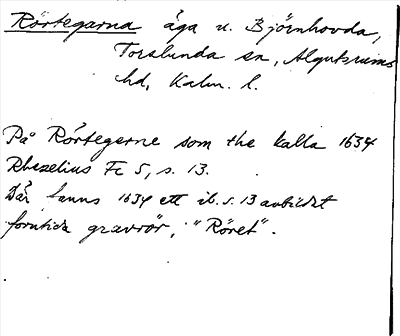 Rörtegarna äga u. Björnhovda,
Torslunda sn, Algutsrums
hd, Kalm. l.
På Rörtegerne som the kalla 1634
Rhezelius Fc 5, s. 13.
Där fanns 1634 ett ib. s. 13 avbildat
forntida gravrör, "Röret".